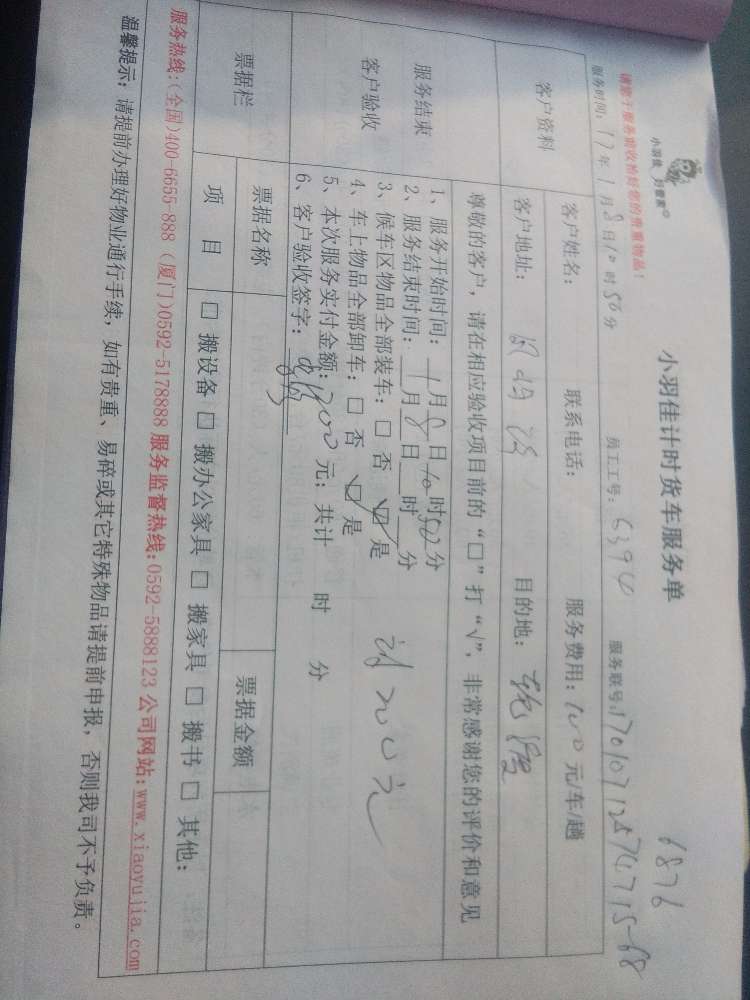 小羽佳 好管家
6876
小羽佳计时货车服务单
请您于服务前收拾好您的贵重物品！
服务时间：17年1月8日10时50分 员工工号：6394 服务联号：
客户资料
客户姓名： 联系电话： 服务费用：100元/车/趟
客户地址： 目的地：
服务结束
客户验收
尊敬的客户，请在相应验收项目前的“□”打“√”，非常感谢您的评价和意见
1、服务开始时间：1月8日10时50分
2、服务结束时间：1月8日 时 分
3、候车区物品全部装车：□ 否 ☑ 是
4、车上物品全部卸车：□ 否 ☑ 是
5、本次服务实付金额：200元；共计 时 分
6、客户验收签字：
200元
票据栏
票据名称 票据金额
项 目 □ 搬设备 □ 搬办公家具 □ 搬家具 □ 搬书 □ 其他：
服务热线：(全国)400-6655-888 (厦门)0592-5178888 服务监督热线：0592-5888123 公司网站：www.xiaoyujia.com
温馨提示：请提前办理好物业通行手续，如有贵重、易碎或其它特殊物品请提前申报，否则我司不予负责。